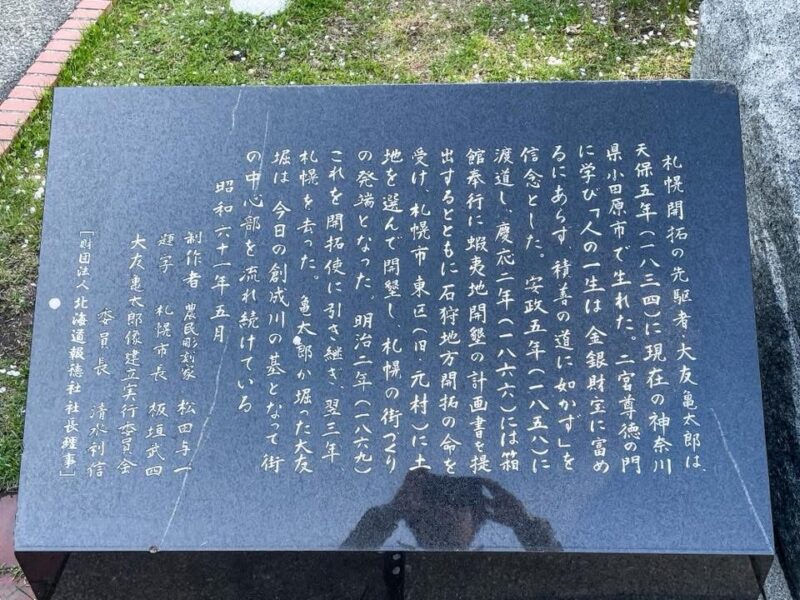 札幌開拓の先駆者・大友亀太郎は、
天保五年(一八三四)に現在の神奈川
県小田原市で生れた。二宮尊徳の門
に学び「人の一生は 金銀財宝に富め
るにあらず、積善の道に如かず」を
信念とした。安政五年(一八五八)に
渡道し、慶応二年(一八六六)には箱
館奉行に 蝦夷地開墾の計画書を提
出するとともに石狩地方開拓の命を
受け、札幌市東区(旧・元村)に土
地を選んで開墾し、札幌の街づくり
の発端となった。明治二年(一八六九)
これを開拓使に引き継ぎ、翌三年
札幌を去った。 亀太郎が堀った大友
堀は 今日の創成川の基となって街
の中心部を流れ続けている
昭和六十一年五月
制作者 農民彫刻家 松田与一
題字 札幌市長 板垣武四
大友亀太郎像建立実行委員会
委員長 清水利信
「財団法人 北海道報徳社 社長理事」